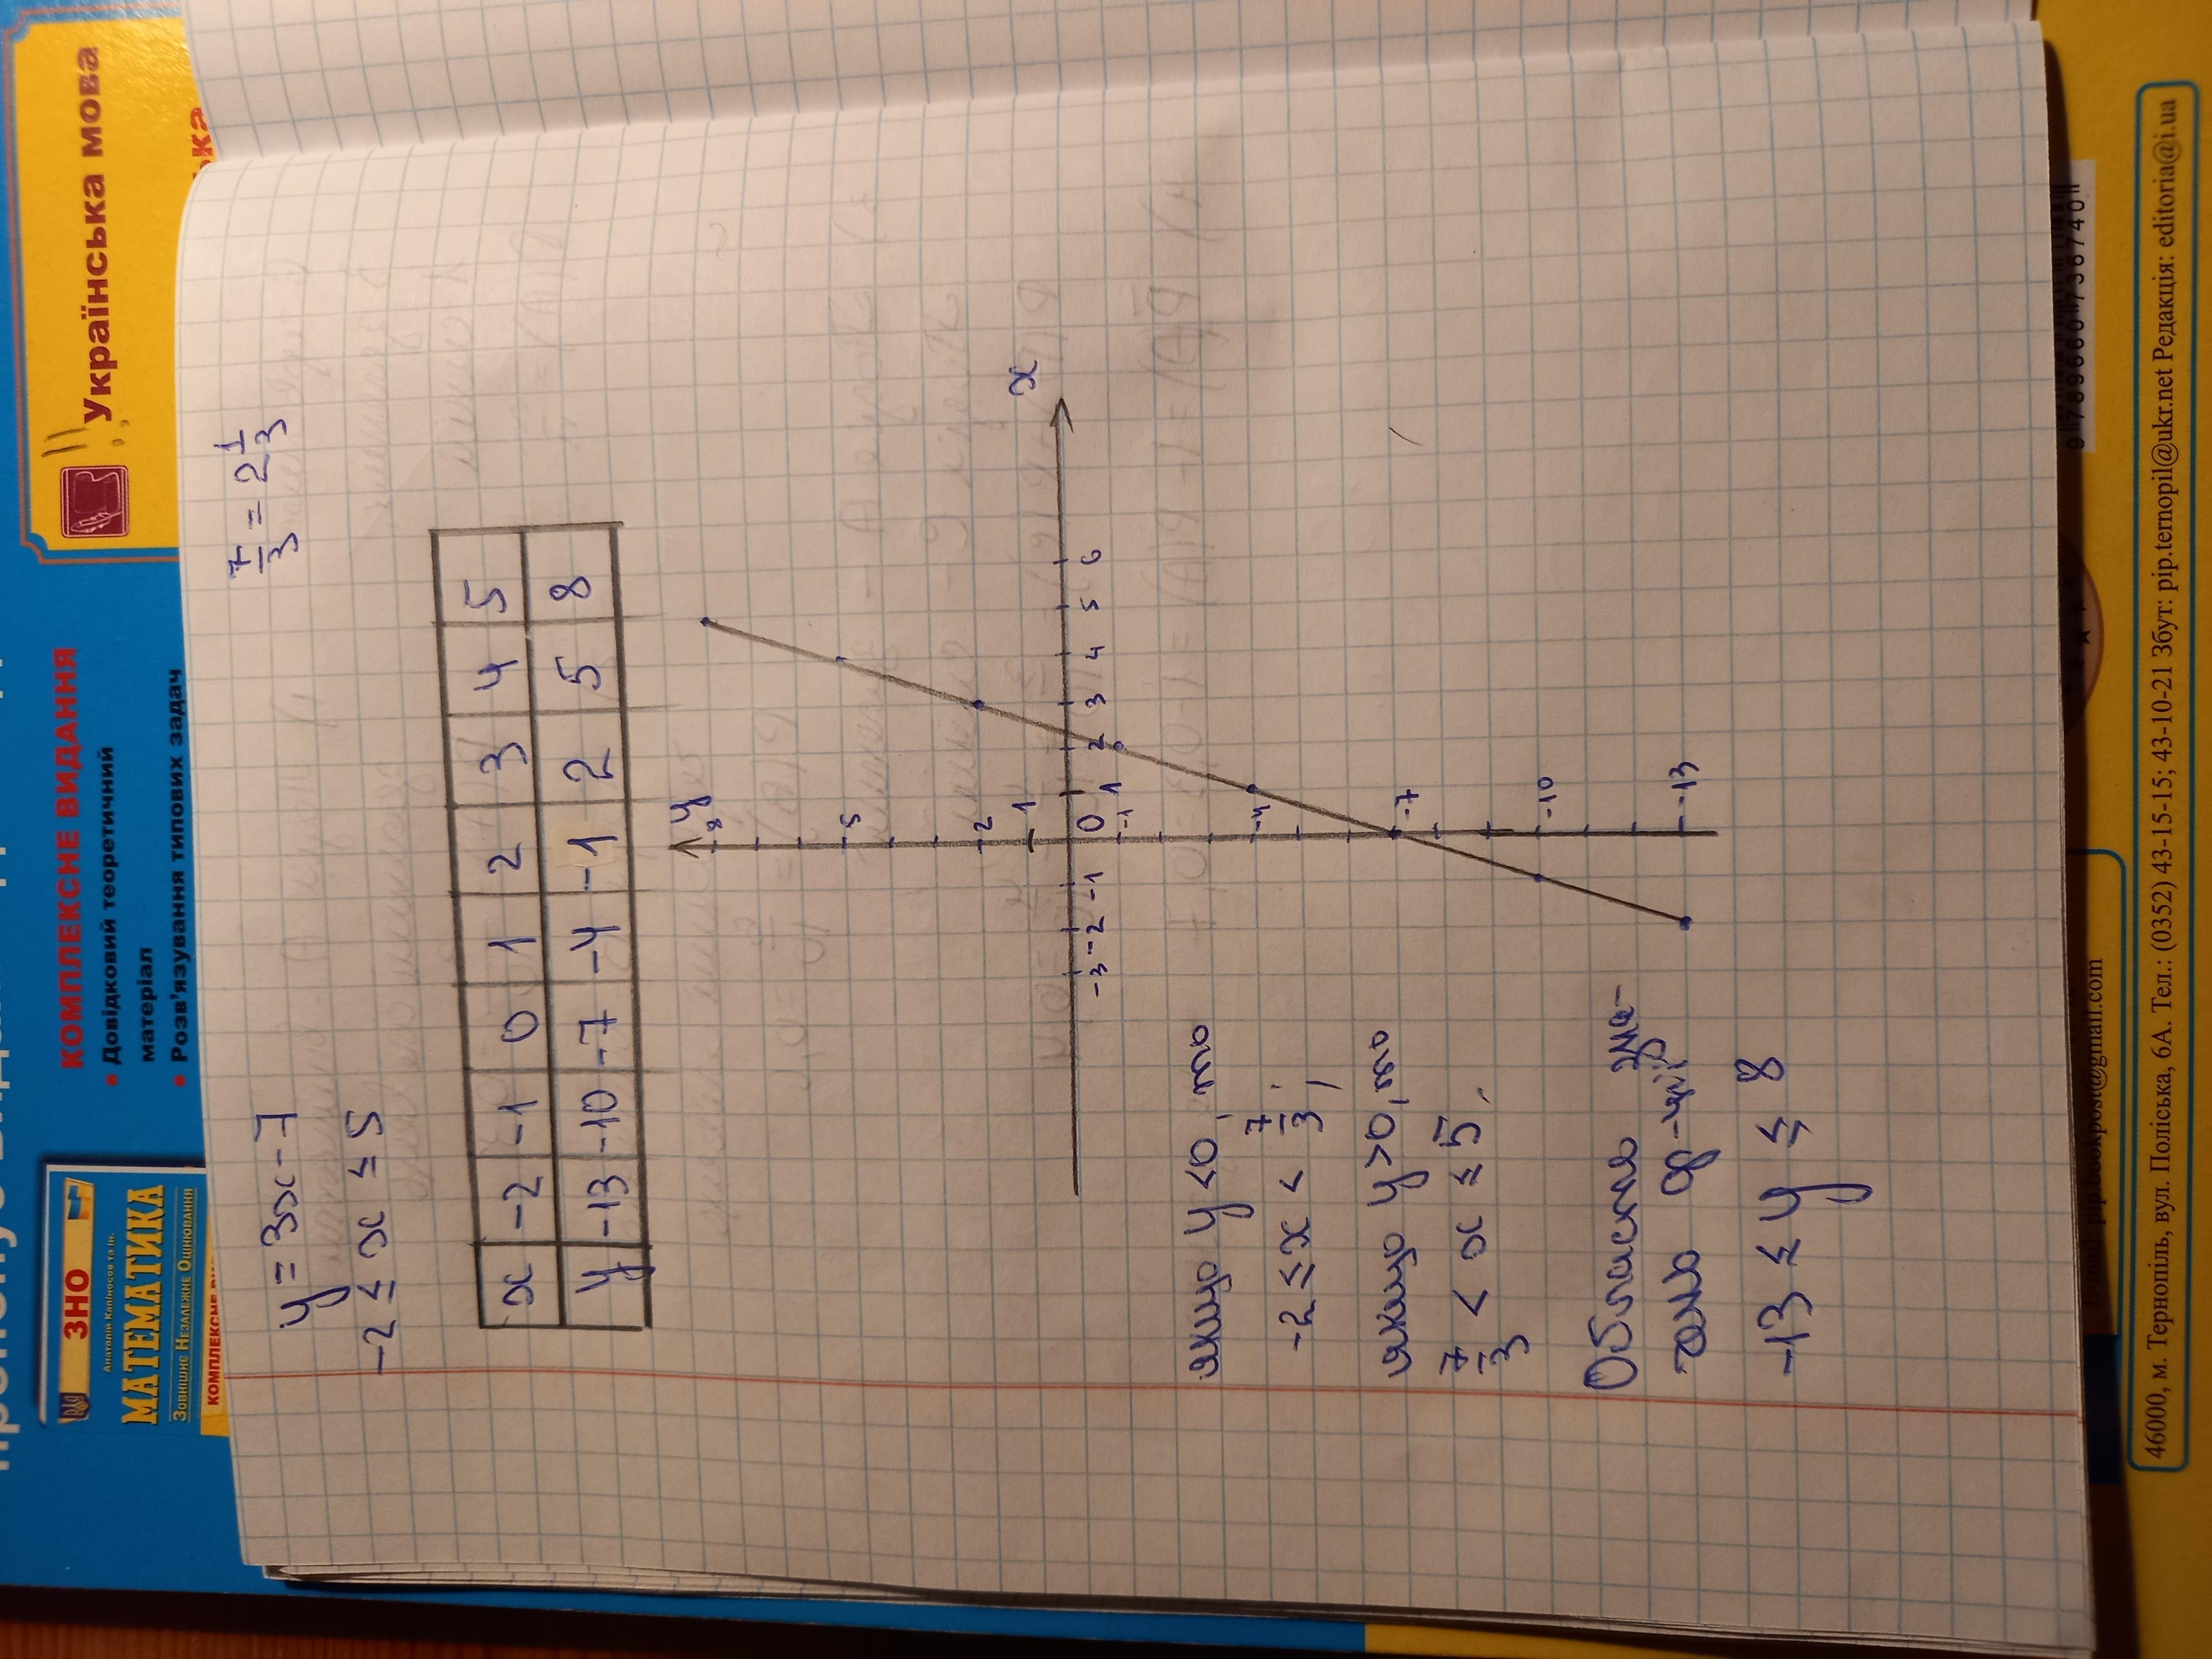 y = 3x - 7
-2 ≤ x ≤ 5
7/3 = 2 1/3
x -2 -1 0 1 2 3 4 5
y -13 -10 -7 -4 -1 2 5 8
y
8
5
2
1
x
-3 -2 -1 0 1 2 3 4 5 6
-1
-4
-7
-10
-13
якщо y < 0, то
-2 ≤ x < 7/3;
якщо y > 0, то
7/3 < x ≤ 5.
Область зна-
чень ф-ції
-13 ≤ y ≤ 8
ЗНО
Анатолій Капіносов та ін.
МАТЕМАТИКА
Зовнішнє Незалежне Оцінювання
КОМПЛЕКСНЕ
КОМПЛЕКСНЕ ВИДАННЯ
• Довідковий теоретичний
матеріал
• Розв'язування типових задач
Українська мова
pip.bookpost@gmail.com
9 789660 736740
46000, м. Тернопіль, вул. Поліська, 6А. Тел.: (0352) 43-15-15; 43-10-21 Збут: pip.ternopil@ukr.net Редакція: editoria@i.ua